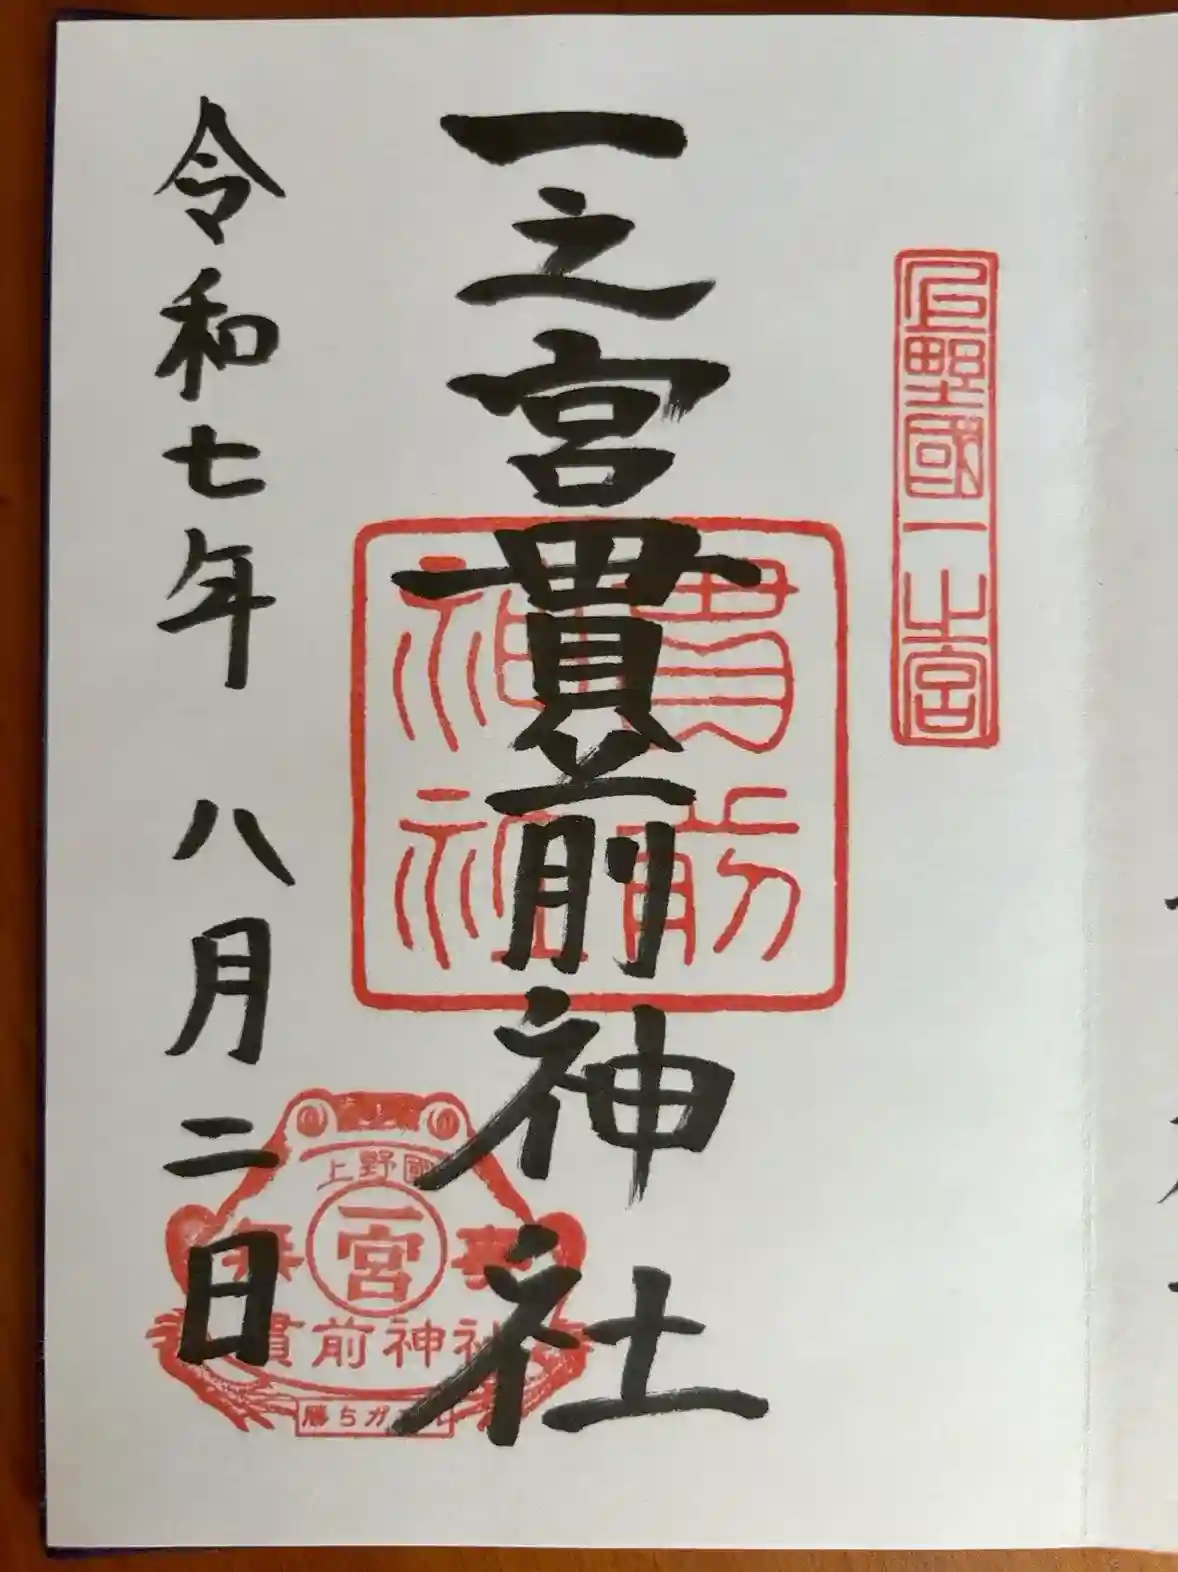 上野國一之宮
一之宮貫前神社
貫前
神社
令和七年 八月二日
上野國
一宮
無事
貫前神社
勝ちガエル